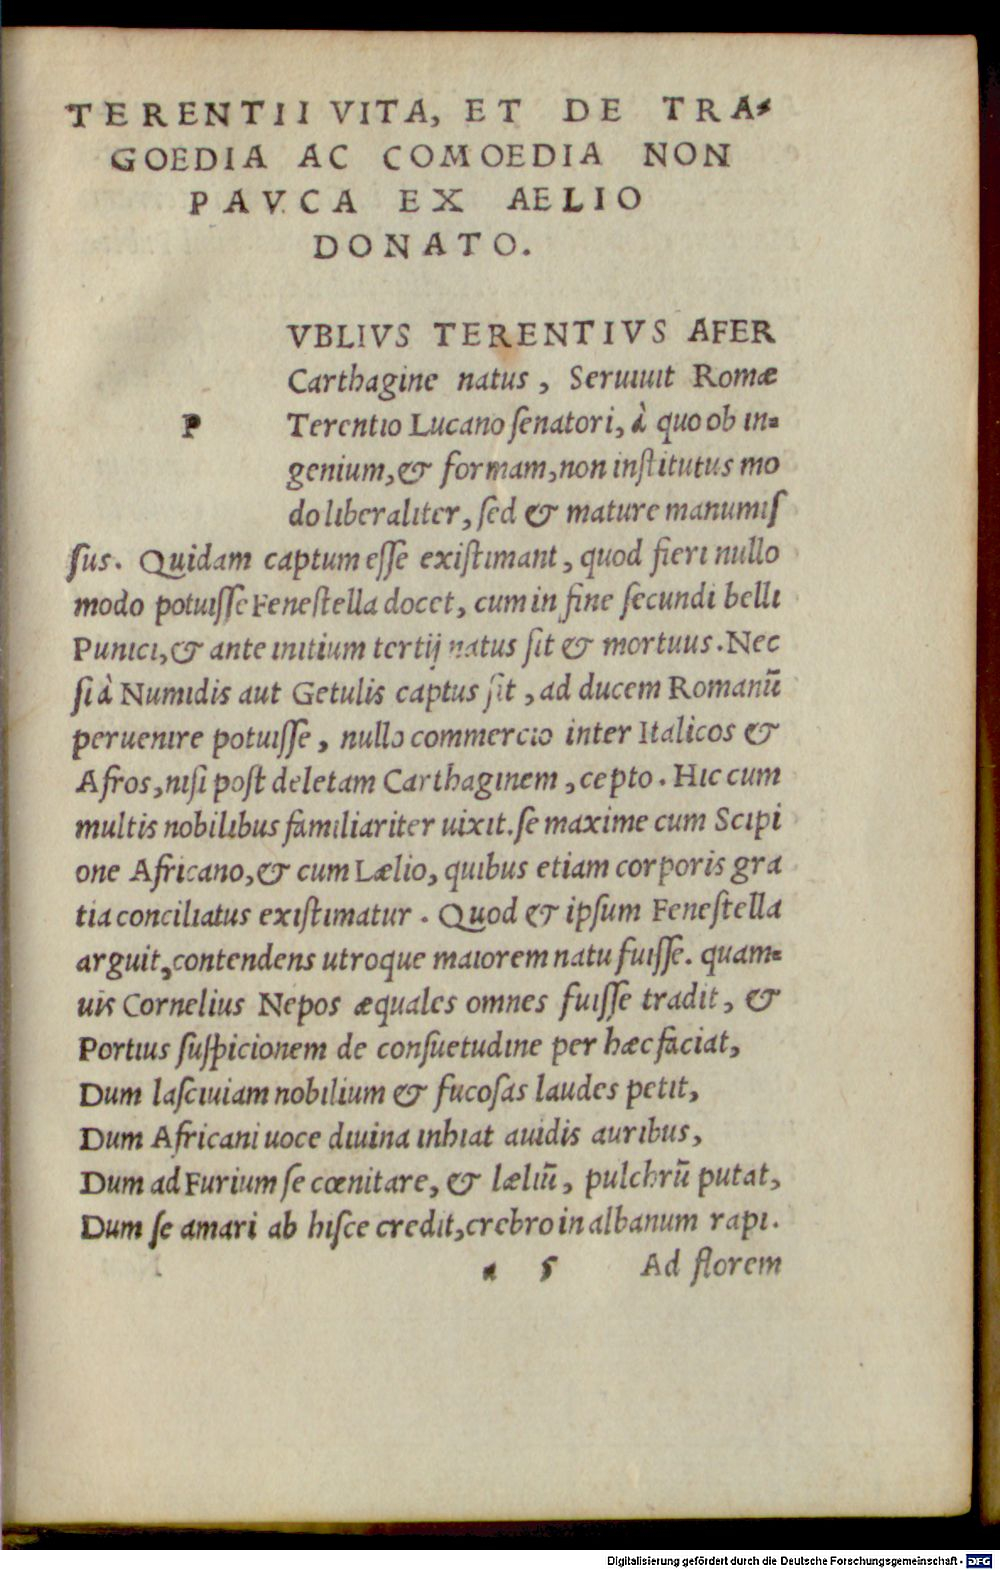 TERENTII VITA, ET DE TRA-
GOEDIA AC COMOEDIA NON
PAVCA EX AELIO
DONATO.
VBLIVS TERENTIVS AFER
Carthagine natus, Seruiuit Romæ
P Terentio Lucano ſenatori, à quo ob in-
genium, & formam, non inſtitutus mo
do liberaliter, ſed & mature manumiſ
ſus. Quidam captum eſſe exiſtimant, quod fieri nullo
modo potuiſſe Feneſtella docet, cum in fine ſecundi belli
Punici, & ante initium tertij natus ſit & mortuus. Nec
ſi à Numidis aut Getulis captus ſit, ad ducem Romanū
peruenire potuiſſe, nullo commercio inter Italicos &
Afros, niſi poſt deletam Carthaginem, cepto. Hic cum
multis nobilibus familiariter uixit. ſe maxime cum Scipi
one Africano, & cum Lælio, quibus etiam corporis gra
tia conciliatus exiſtimatur. Quod & ipſum Feneſtella
arguit, contendens utroque maiorem natu fuiſſe. quam-
uis Cornelius Nepos æquales omnes fuiſſe tradit, &
Portius ſuſpicionem de conſuetudine per hæc faciat,
Dum laſciuiam nobilium & fucoſas laudes petit,
Dum Africani uoce diuina inhiat auidis auribus,
Dum ad Furium ſe cœnitare, & læliū, pulchrū putat,
Dum ſe amari ab hiſce credit, crebro in albanum rapi.
a 5 Ad florem
Digitalisierung gefördert durch die Deutsche Forschungsgemeinschaft - DFG